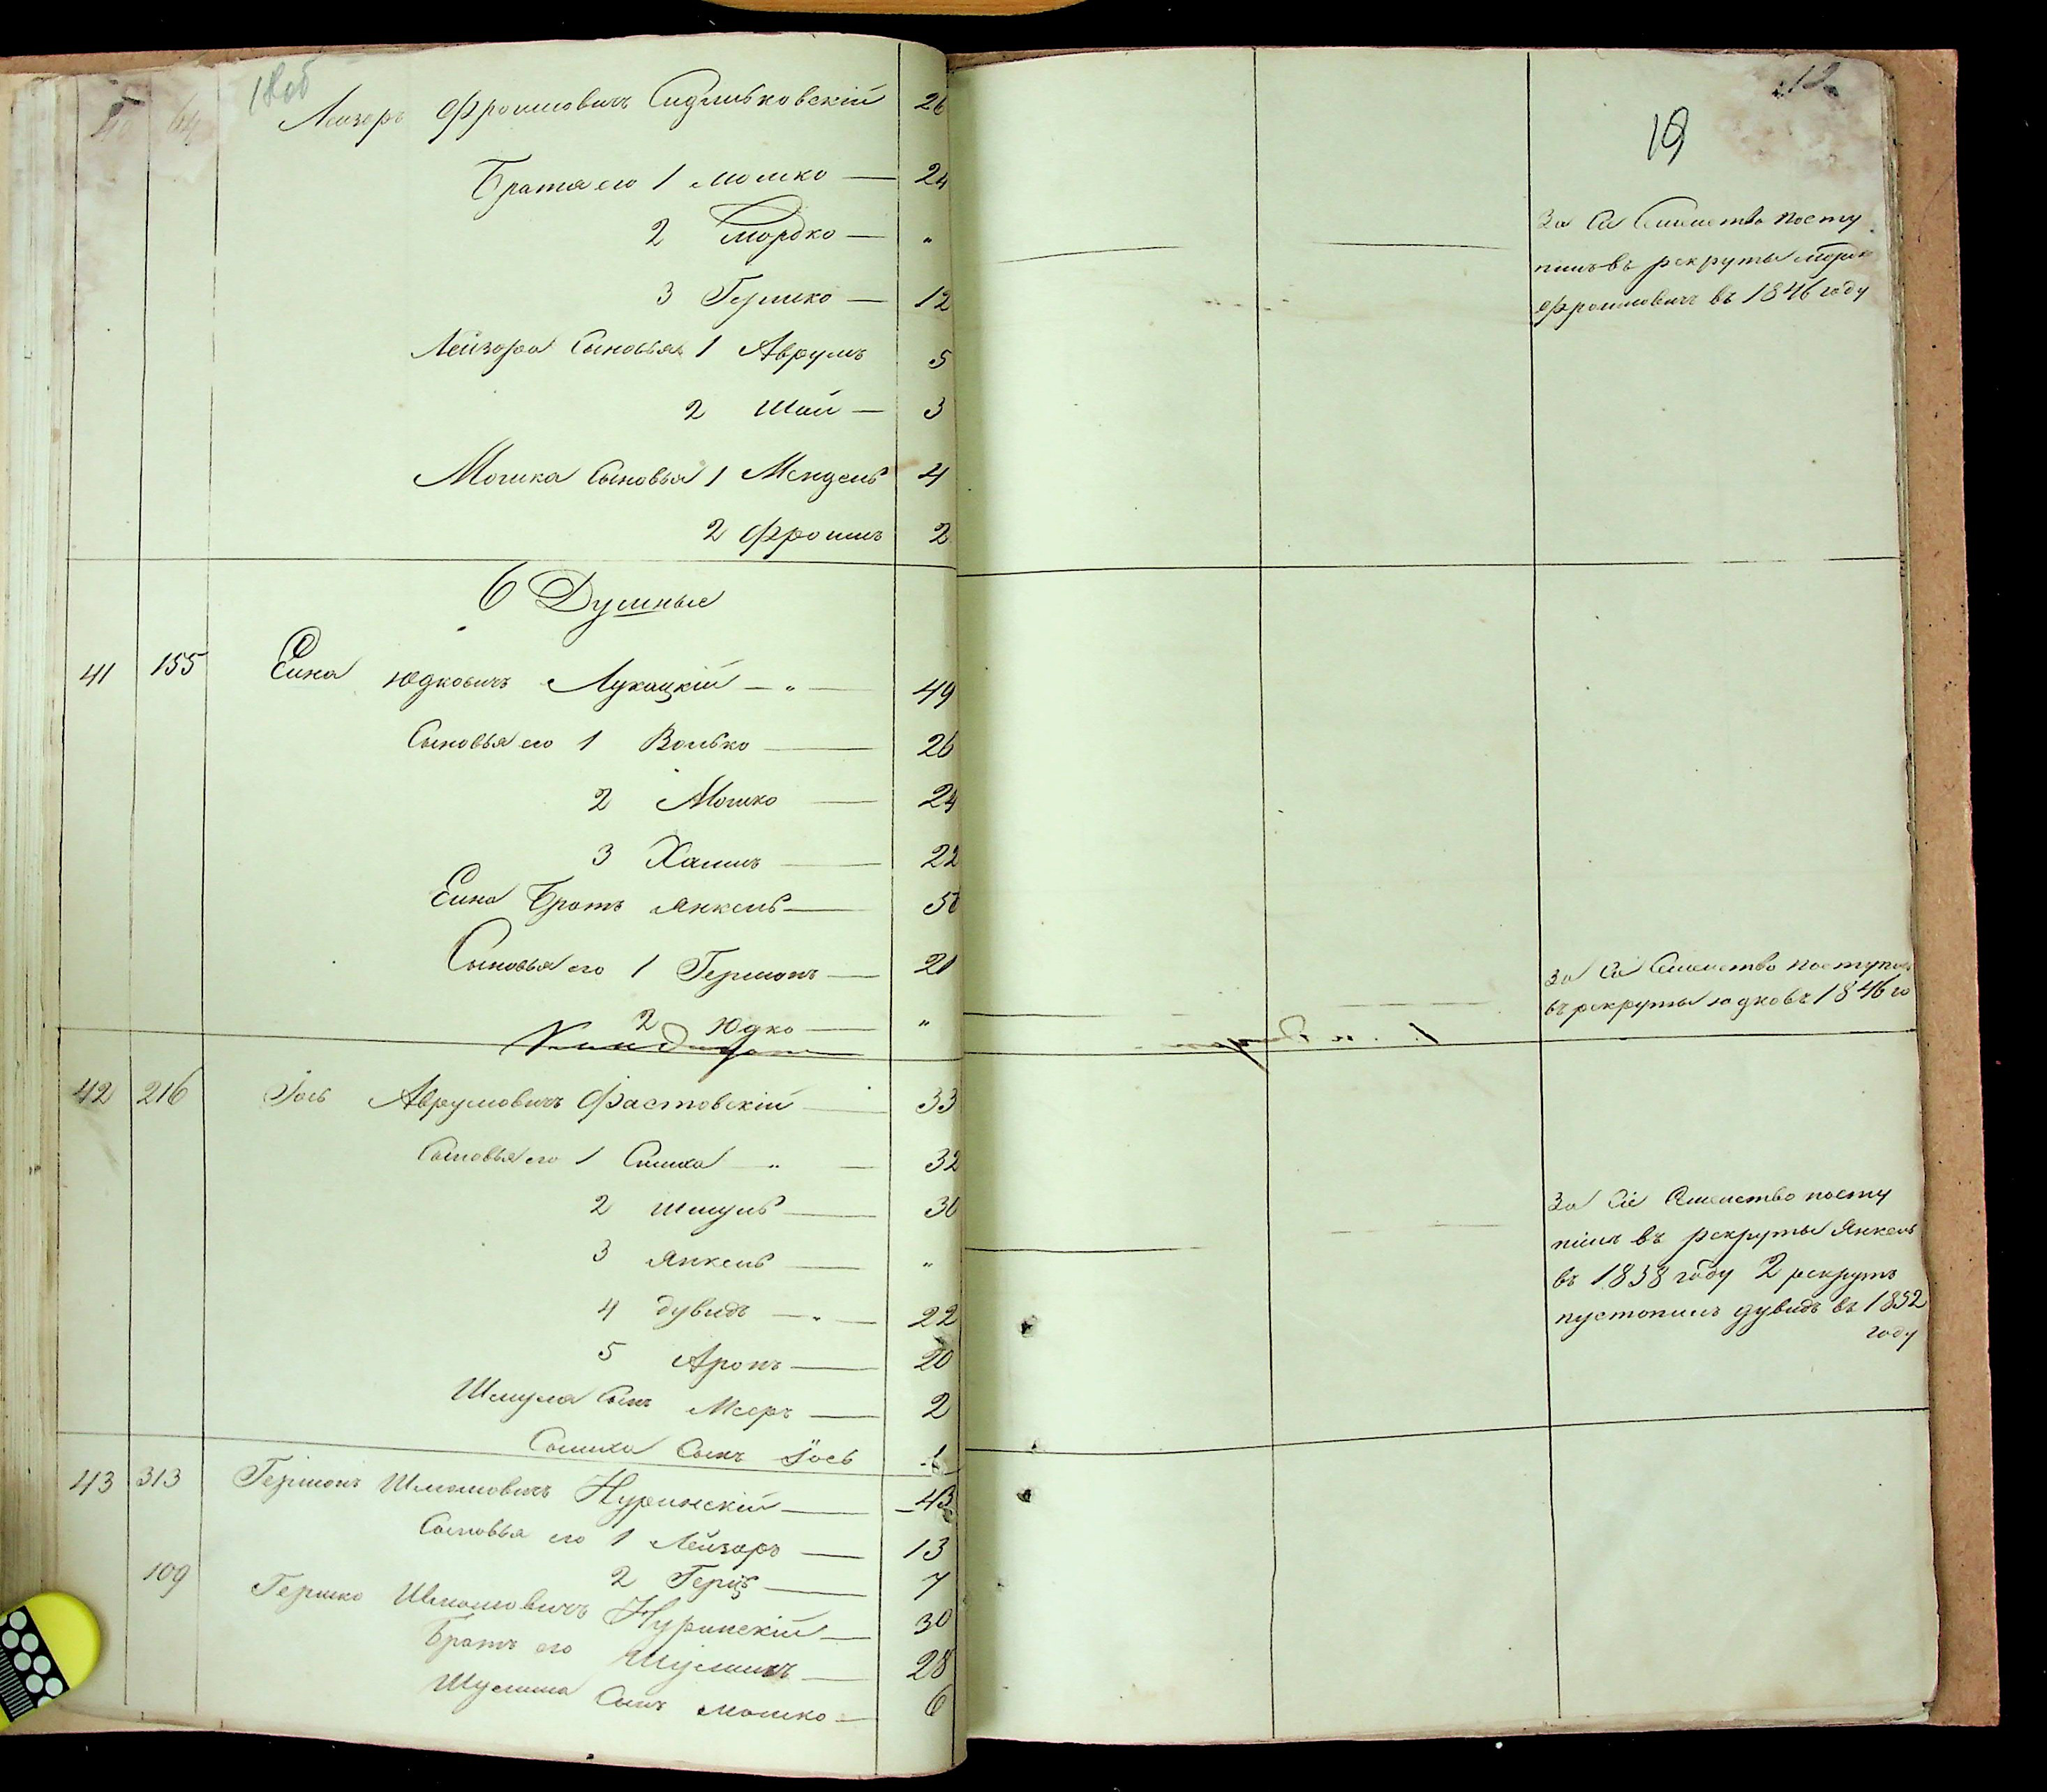 18об
40 64 Лейзоръ Фроимовичъ Сидлиьковскій 26
Братя его 1 Мошко — 24
2 Мордко — „
3 Гершко — 12
Лейзора Сыновья 1 Аврумъ 5
2 Шай — 3
Мошка Сыновья 1 Мендель 4
2 Фроимъ 2
6 Душные
41 155 Еина Юдковичъ Лукацкій — „ — 49
Сыновья его 1 Волько — 26
2 Мошко — 24
3 Хаимъ — 22
Еина Братъ Янкель — 50
Сыновья его 1 Гершонъ — 21
2 Юдко — „
42 216 Іось Аврумовичъ Фастовскій — 33
Сыновья его 1 Симха „ — 32
2 Шмуль — 30
3 Янкель — „
4 Дувидъ — „ — 22
5 Аронъ — 20
Шмуля Сынъ Мееръ — 2
Симха Сынъ Іось 1
43 313 Гершонъ Шлиомовичъ Нуринскій — 43
Сыновья его 1 Лейзоръ — 13
2 Герцъ — 7
109 Гершко Шлиомовичъ Нуринскій — 30
Братъ его Шулимъ — 28
Шулима Сынъ Мошко — 6
12
19
За Сie Семейство посту
пилъ въ рекруты Мордко
Фроимовичъ въ 1846 году
За Сie Семейство поступилъ
въ рекруты Юдко въ 1846 го
За Сіе Семейство посту
пилъ въ рекруты Янкель
въ 1838 году 2 рекрутъ
пустопилъ Дувидъ въ 1852
году